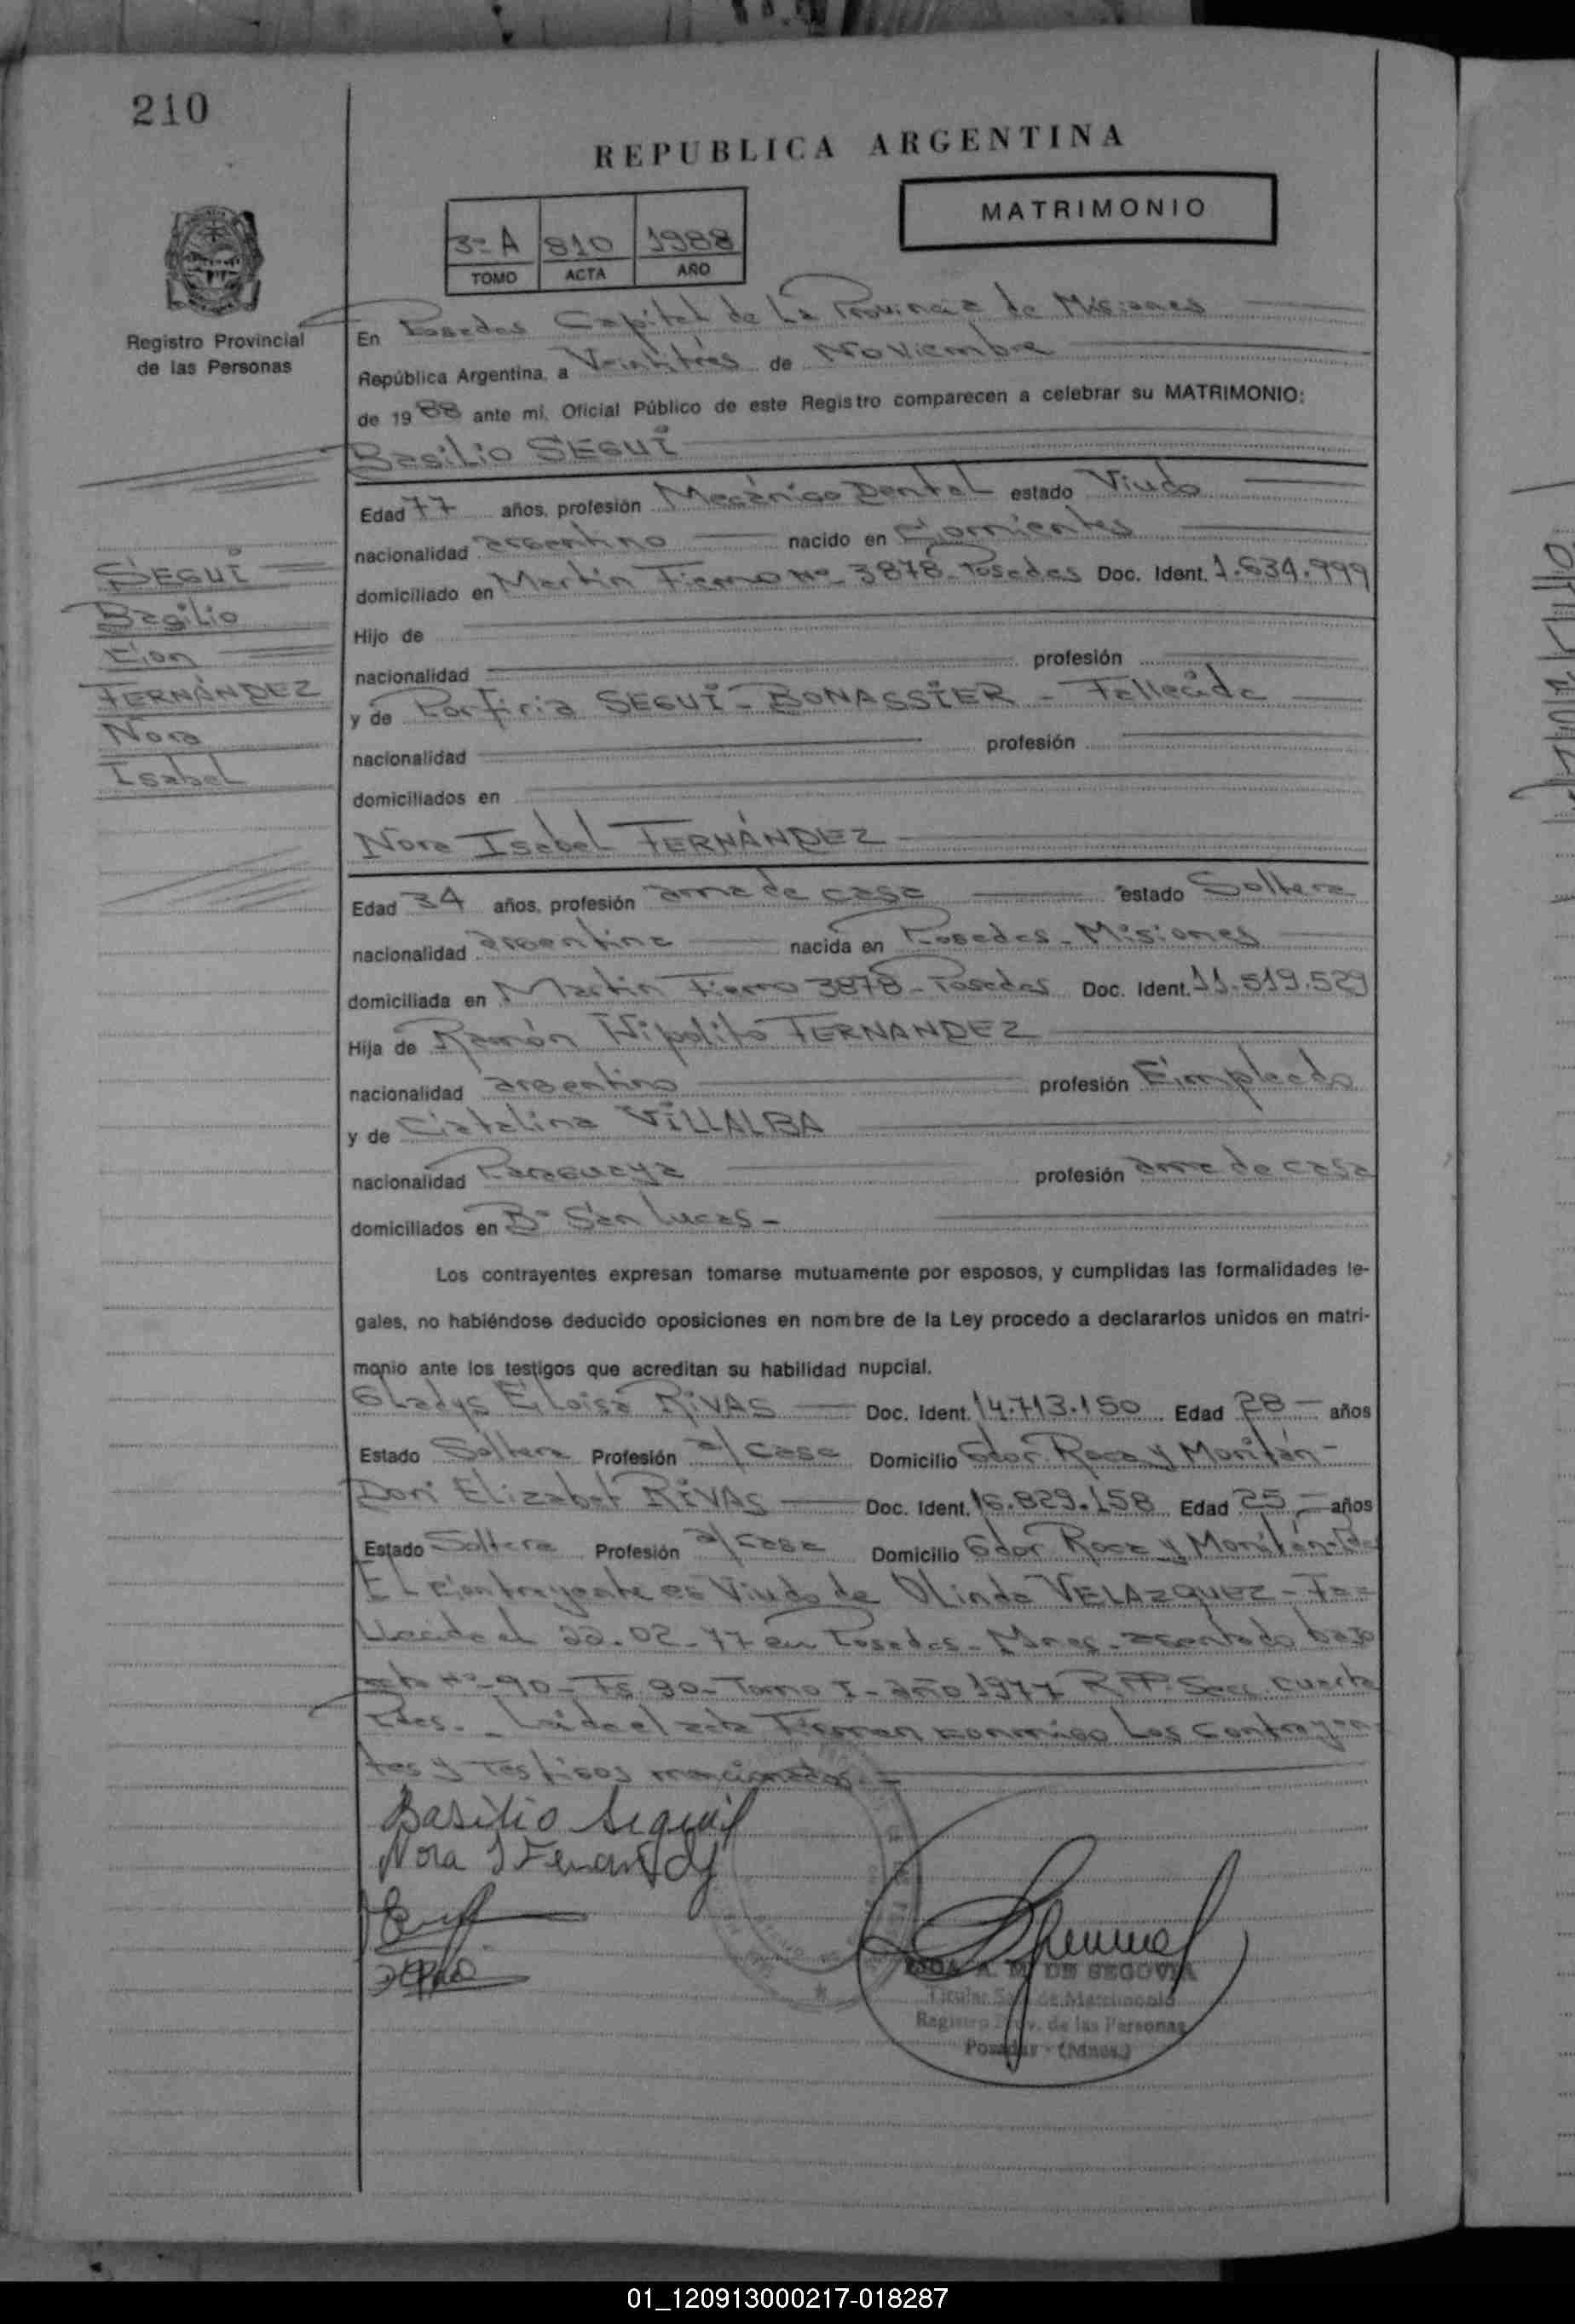 210
REPUBLICA ARGENTINA
MATRIMONIO
3º A 810 1988
TOMO ACTA AÑO
Registro Provincial
de las Personas
En Posadas Capital de La Provincia de Misiones
República Argentina, a Veintitrés de Noviembre
de 1988 ante mi, Oficial Público de este Registro comparecen a celebrar su MATRIMONIO:
Basilio SEGUI
Edad 77 años, profesión Mecánico Dental estado Viudo
nacionalidad argentino nacido en Corrientes
domiciliado en Martín Fierro Nº 3878 - Posadas Doc. Ident. 1.634.999
Hijo de
nacionalidad profesión
y de Porfiria SEGUI - BONASSIER - Fallecida
nacionalidad profesión
domiciliados en
SEGUI
Basilio
Con
FERNÁNDEZ
Nora
Isabel
Nora Isabel FERNÁNDEZ
Edad 34 años, profesión ama de casa estado Soltera
nacionalidad argentina nacida en Posadas - Misiones
domiciliada en Martín Fierro 3878 - Posadas Doc. Ident. 11.519.529
Hija de Ramón Hipolito FERNANDEZ
nacionalidad argentino profesión Empleado
y de Catalina VILLALBA
nacionalidad Paraguaya profesión ama de casa
domiciliados en Bº San Lucas -
Los contrayentes expresan tomarse mutuamente por esposos, y cumplidas las formalidades le-
gales, no habiéndose deducido oposiciones en nombre de la Ley procedo a declararlos unidos en matri-
monio ante los testigos que acreditan su habilidad nupcial.
Gladys Eloisa RIVAS Doc. Ident. 14.713.150 Edad 28 - años
Estado Soltera Profesión a/ casa Domicilio Gdor. Roca y Monitán -
Dori Elizabet RIVAS Doc. Ident. 16.829.158 Edad 25 - años
Estado Soltera Profesión a/ casa Domicilio Gdor Roca y Monitán -
El contrayente es Viudo de Olinda VELAZQUEZ - Fa-
llecida el 22-02-77 en Posadas - Mnes - asentado bajo
acta Nº 90 - Fs 90 - Tomo I - año 1977 R.P.P. Secc. Cuarta
Pdas. - Leída el acta Firman conmigo Los Contrayen-
tes y Testigos mencionados. -
Basilio Segui
Nora I Fernandez
A. M. DE SEGOVIA
Titular Sec. de Matrimonio
Registro Prov. de las Personas
Posadas - (Mnes.)
01_120913000217-018287